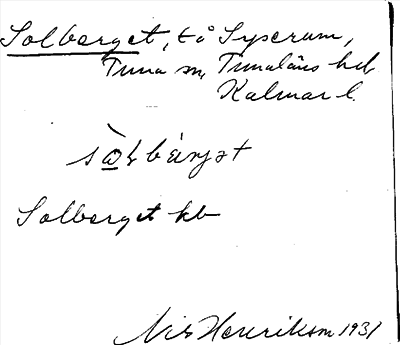 Solberget, t å Syserum,
Tuna sn, Tunaläns hd,
Kalmar l.
Solberget kb
Nils Henriksson 1931